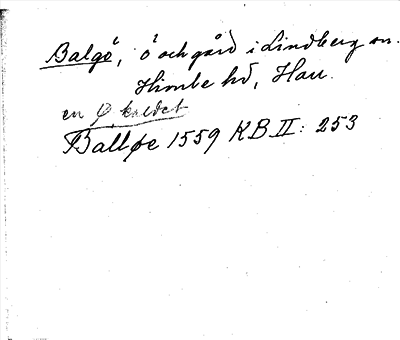 Balgö, ö och gård i Lindberg sn.
Himle hd, Hall.
en Ø, kaldet
Balløe 1559 KB II: 253